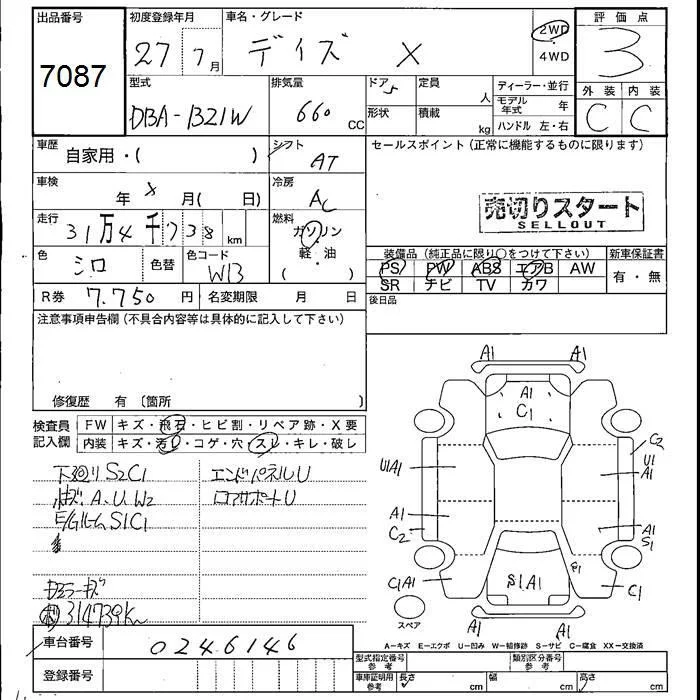 出品番号 初度登録年月 車名・グレード 評価点
7087 27 7月 デイズ X 2WD・4WD 3
型式 排気量 ドア 定員 ディーラー・並行 外装 内装
DBA-B21W 660 CC 5 人 モデル年式 年 C C
形状 積載 kg ハンドル 左・右
車歴 自家用・( ) シフト AT セールスポイント(正常に機能するものに限ります)
車検 年 月( 日) 冷房 AC
売切りスタート
SELLOUT
走行 31万4千738km 燃料 ガソリン・軽・油 ( )
色 シロ 色替 色コード W13
装備品(純正品に限り○をつけて下さい) 新車保証書
PS PW ABS エアB AW 有・無
SR ナビ TV カワ
R券 7.750円 名変期限 月 日 後日品
注意事項申告欄(不具合内容等は具体的に記入して下さい)
修復歴 有(箇所 )
検査員記入欄 FW キズ・飛石・ヒビ割・リペア跡・X要
内装 キズ・汚レ・コゲ・穴・スレ・キレ・破レ
下廻りS2C1 エンドパネルU
A、U、W2 ロアサポートU
E/GルームS1C1
314739Km
A1 A1
A1
C1
C2
U1A1 U1 A1
A1 A1
C2 S1
S1
C1A1 S1A1 C1
スペア A1 A1
A-キズ E-エクボ U-凹み W-補修跡 S-サビ C-腐食 XX-交換済
車台番号 0246146
登録番号
型式指定番号 参考 類別区分番号 参考
車庫証明用 参考 長さ cm 幅 cm 高さ cm